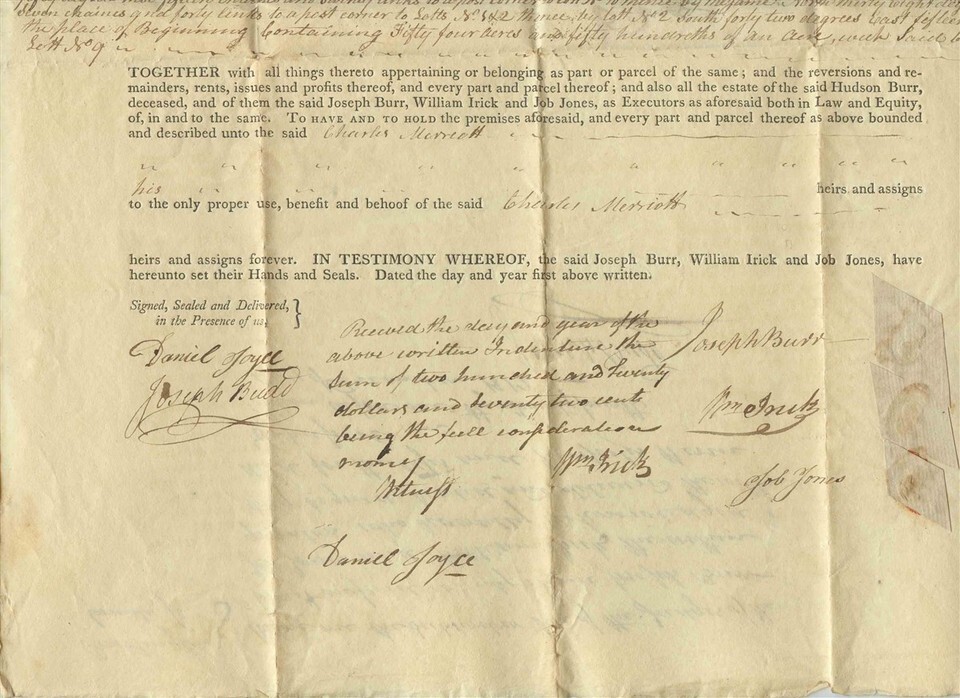 Seven chaines and forty links to a post corner to Lotts No. 1 & 2 thence by Lott No. 2 South forty two degrees East fifteen
the place of Beginning Containing Fifty four Acres and fifty hundreths of an Acre, with Said
Lott No. 9
TOGETHER with all things thereto appertaining or belonging as part or parcel of the same; and the reversions and re-
mainders, rents, issues and profits thereof, and every part and parcel thereof; and also all the estate of the said Hudson Burr,
deceased, and of them the said Joseph Burr, William Irick and Job Jones, as Executors as aforesaid both in Law and Equity,
of, in and to the same. To HAVE AND TO HOLD the premises aforesaid, and every part and parcel thereof as above bounded
and described unto the said Charles Merriott
his heirs and assigns
to the only proper use, benefit and behoof of the said Charles Merriott
heirs and assigns forever. IN TESTIMONY WHEREOF, the said Joseph Burr, William Irick and Job Jones, have
hereunto set their Hands and Seals. Dated the day and year first above written.
Signed, Sealed and Delivered, }
in the Presence of us,
Daniel Joyce
Joseph Budd
Received the day and year of the
above written Indenture the
Sum of two hundred and Seventy
dollars and Seventy two cents
being the full consideration
money
Wm. Irick
Witness
Daniel Joyce
Joseph Burr
Wm Irick
Job Jones